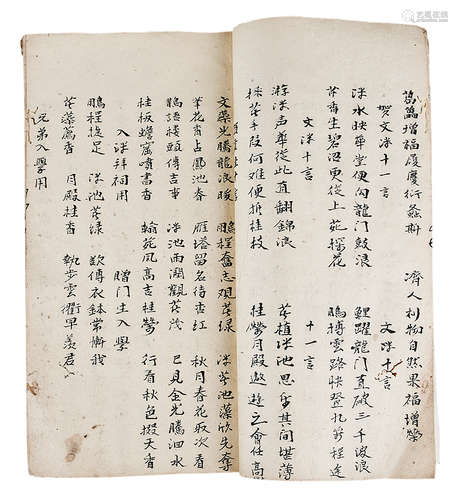 葛藟增福履慶衍螽斯　濟人利物自然果福增榮
賀文泮十一言　文泮十言
泮水映華堂便勾龍門鼓浪　鯉躍龍門直破三千波浪
芹香生碧沼更從上苑探花　鵬搏雲路快登九萬程途
文泮十言　十一言
游泮声華從此直翻錦浪　芹植泮池思樂其間堪薄
採芹手段何难便折桂枝　桂攀月殿遨遊之會任高
文藻光騰龍浪暖　鵬程奮志观芹绿　泮芹池藻欣先奪
芹花香占鳳池春　雁塔留名待杏红　秋月春花取次看
頭傳吉事　泮池雨潤觀芹茂　已見金光騰泗水
蟾窟噴書香　風高吉桂　行看秋色掇天香
入泮拜祠用　贈门生入學
鵬程捷足　泮池芹绿　傳衣鉢常慚我
芹藻香　月殿桂香　步雲衢早羡君
兄弟入學用